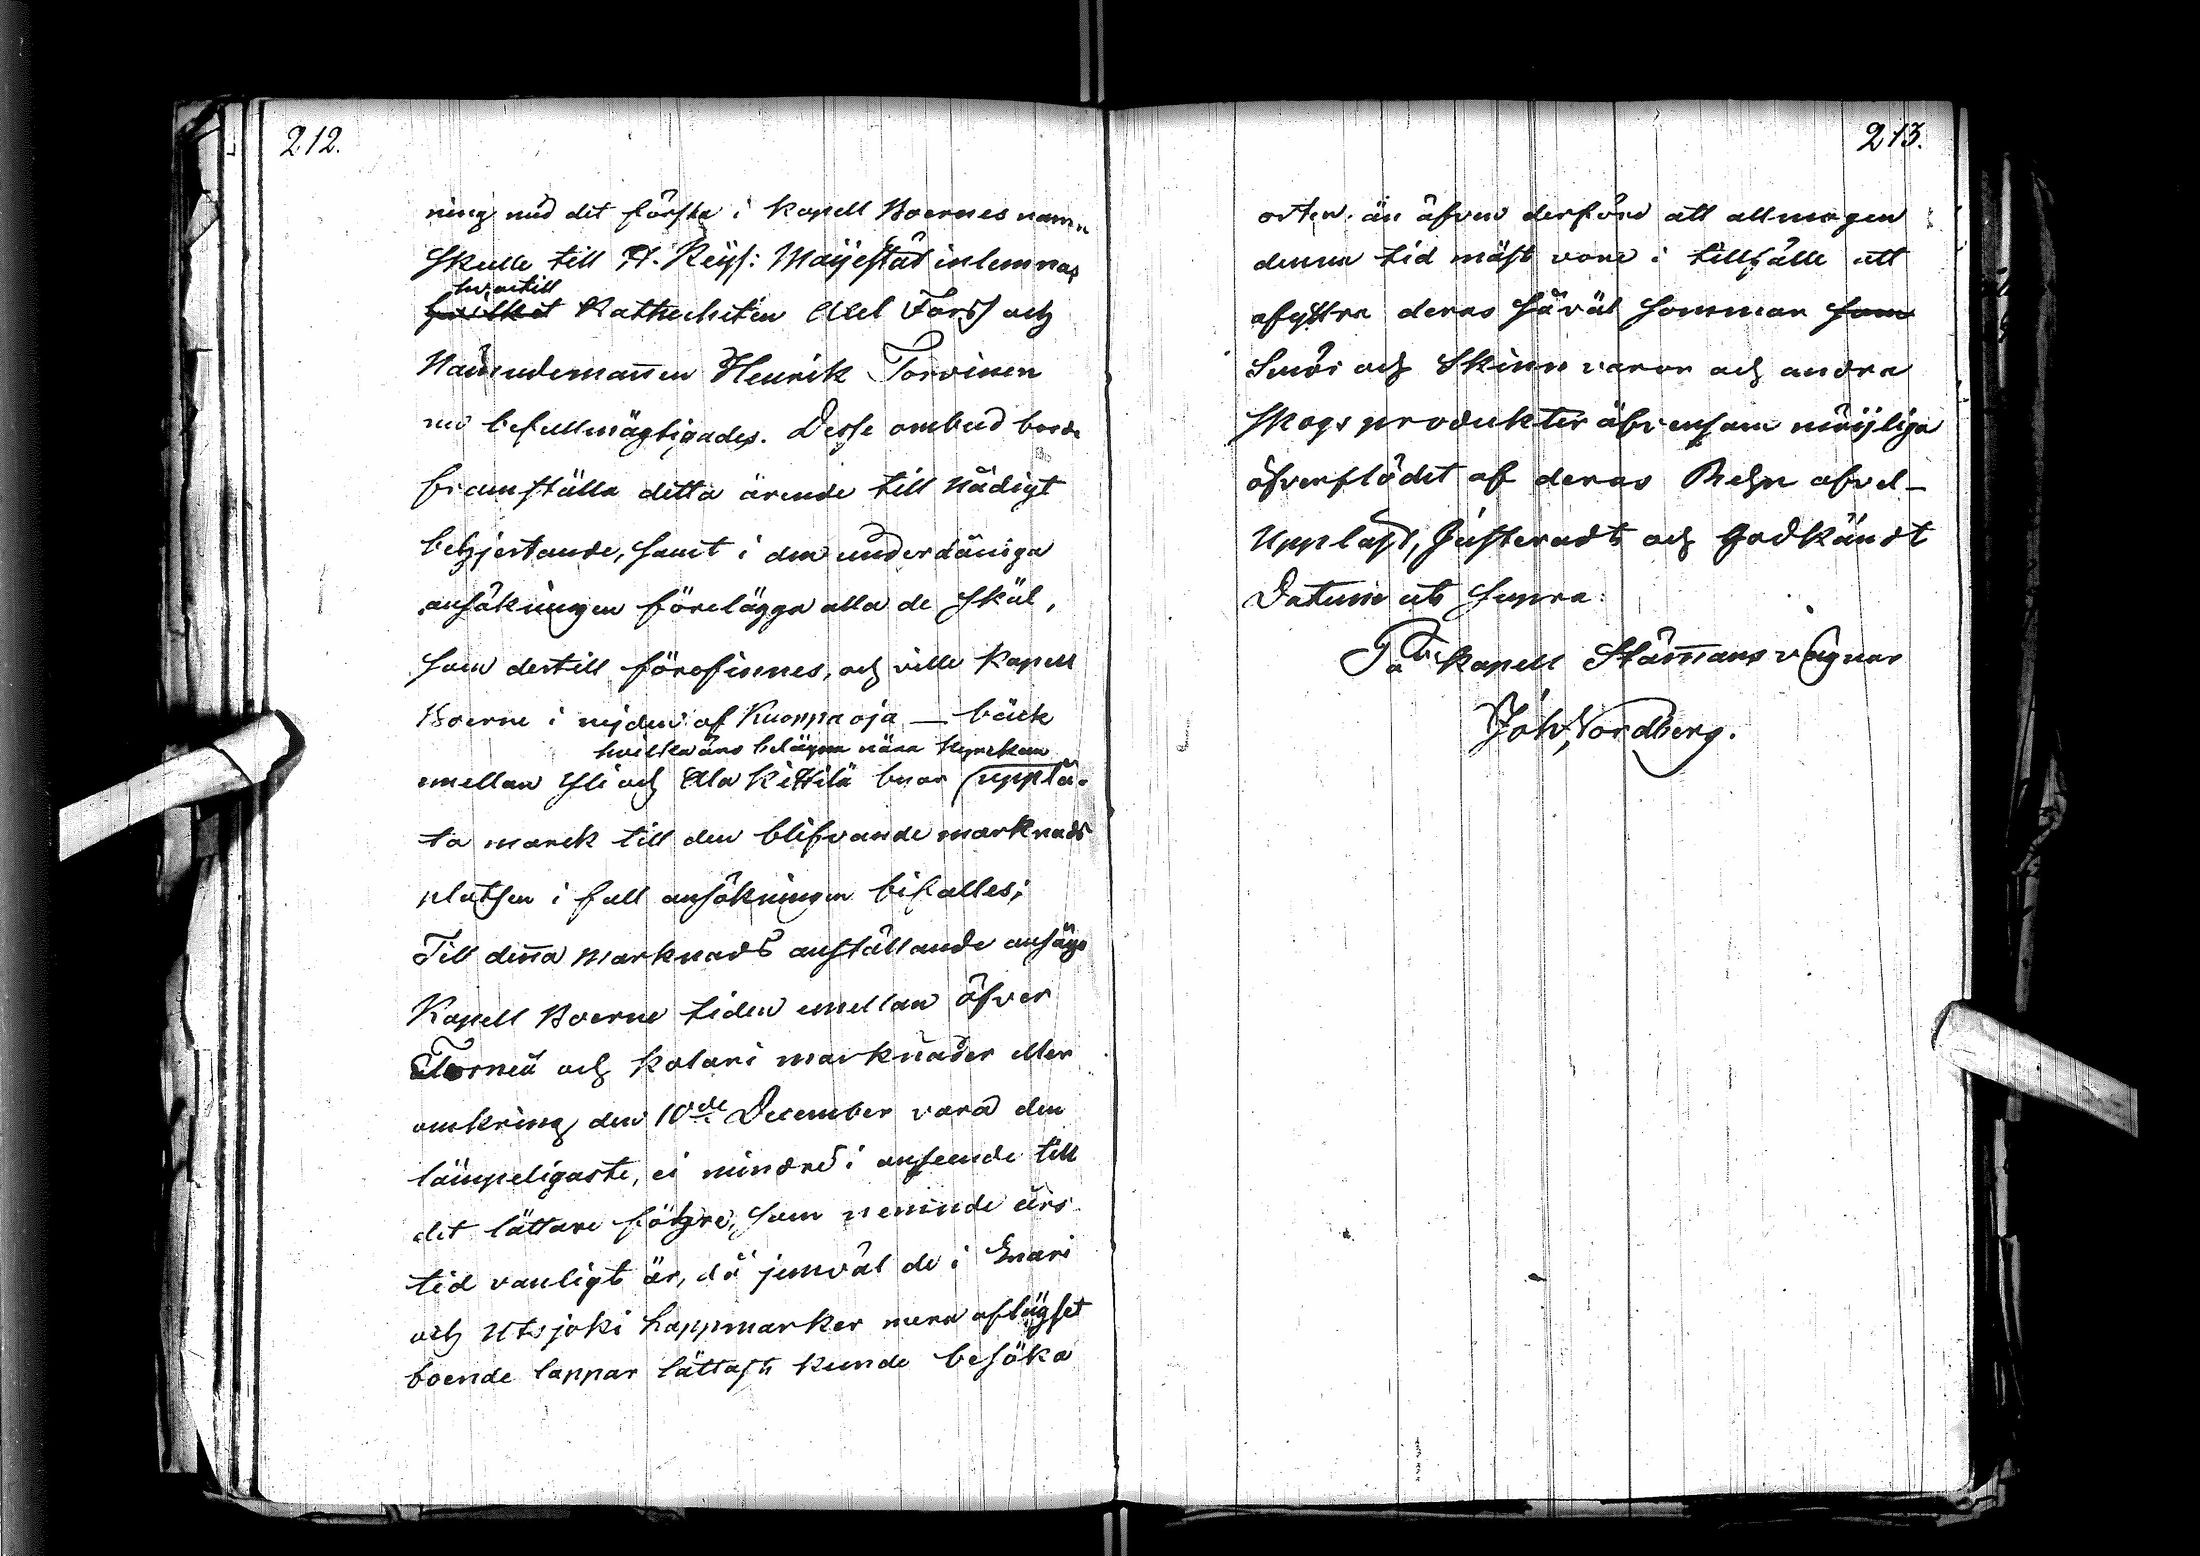 212.
ning med det första i Kapell Boernes namn
skulle till H. Keijs: Maijestät inlemnas
hvartill
hvilket Kathecheten Axel Forss och
Nämndemannen Henrik Torvinen
nu befullmägtigades. Desse ombud borde
framställa detta ärende till Nådigt
behjertande, samt i den underdåniga
ansökningen förelägga alla de skäl,
som dertill förefinnes, och ville Kapell
Boerne i nejden af Kuoppaoja — bäck
hvilka äro belägna nära Kyrckan
emellan Yli och Ala Kittilä byar upplå-
ta marck till den blifvande marknads
platsen i fall ansökningen bifalles;
Till denna Marknads anställande ansågo
Kapell Boerne tiden emellan öfver
Torneå och Kolari marknader eller
omkring den 10de December vara den
lämpeligaste, ei mindre i anseende till
det lättare föhre, som nemnde års
tid vanligt är, då jemväl de i Enari
och Utsjoki Lappmarker mera aflägset
boende lappar lättast kunde besöka
213.
orten. än äfven derföre att allmogen
denna tid mäst vore i tillfälle att
afyttra deras såväl sommar som
Smör och Skinn varor och andra
Skogs produkter äfvensom möijliga
öfverflödet af deras Rehn afvel_
Uppläst, Justeradt och Godkändt
Datum ut supra:
På Kapell Stämmans vägnar
Joh. Nordberg.